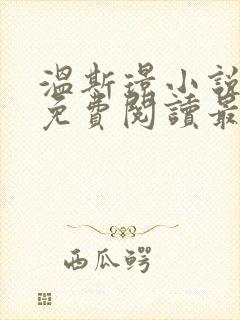 溫斯璟小說
免費閱讀最
西瓜鰐